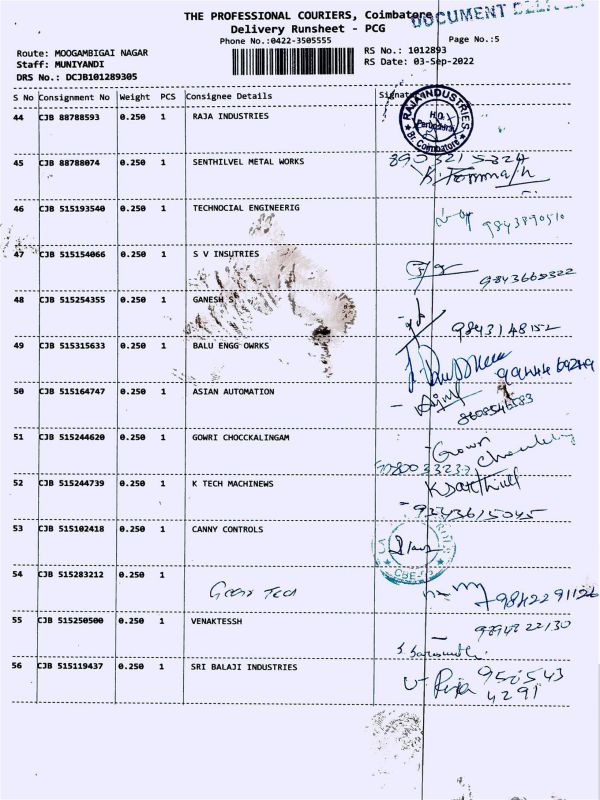 THE PROFESSIONAL COURIERS, Coimbatore
DOCUMENT
Delivery Runsheet - PCG
Phone No.:0422-3505555
Page No.:5
Route: MOOGAMBIGAI NAGAR
RS No.: 1012893
Staff: MUNIYANDI
RS Date: 03-Sep-2022
DRS No.: DCJB101289305
S No Consignment No Weight PCS Consignee Details Signature
44 CJB 88788593 0.250 1 RAJA INDUSTRIES
RAJA INDUSTRIES H.O. Coimbatore
45 CJB 88788074 0.250 1 SENTHILVEL METAL WORKS
46 CJB 515193540 0.250 1 TECHNOCIAL ENGINEERIG
9843890510
47 CJB 515154066 0.250 1 S V INSUTRIES
48 CJB 515254355 0.250 1 GANESH S
9843148152
49 CJB 515315633 0.250 1 BALU ENGG OWRKS
50 CJB 515164747 0.250 1 ASIAN AUTOMATION
51 CJB 515244620 0.250 1 GOWRI CHOCCKALINGAM
Gowri
52 CJB 515244739 0.250 1 K TECH MACHINEWS
K Sakthivel
53 CJB 515102418 0.250 1 CANNY CONTROLS
54 CJB 515283212 0.250 1
Tech
9842291126
55 CJB 515250500 0.250 1 VENAKTESSH
9894822130
56 CJB 515119437 0.250 1 SRI BALAJI INDUSTRIES
950543
4291